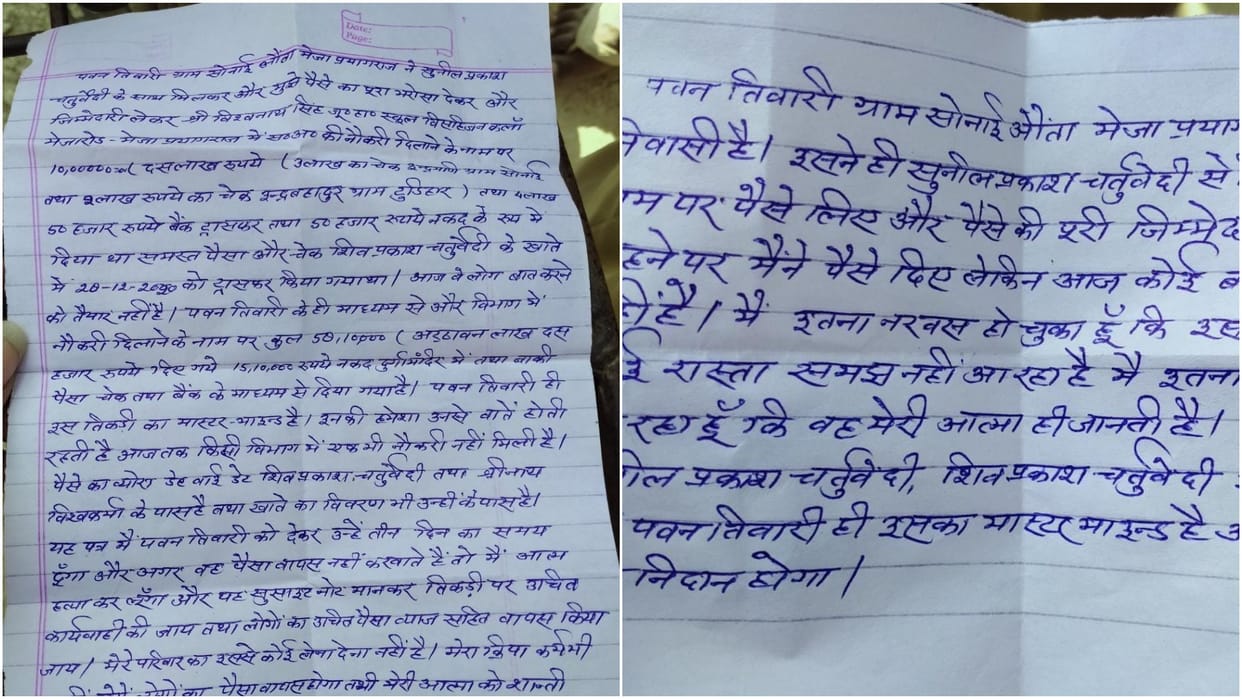 Date:
Page:
पवन तिवारी ग्राम सोनाई औंता मेजा प्रयागराज ने सुनील प्रकाश
चर्तुवेदी के साथ मिलकर और मुझे पैसे का पूरा भरोसा देकर और
जिम्मेदारी लेकर श्री विश्वनाथ सिंह जू० हा० स्कूल
मेजारोड - मेजा प्रयागराज में स०अ० की नौकरी दिलाने के नाम पर
दसलाख रुपये ( 3लाख का चेक ग्राम सोनाई
तथा 2लाख रुपये का चेक इन्द्रबहादुर ग्राम ) तथा 4लाख
50 हजार रुपये बैंक ट्रासफर तथा 50 हजार रुपये नकद के रुप में
दिया था समस्त पैसा और चेक शिव प्रकाश चर्तुवेदी के खाते
में को ट्रासफर किया गयाथा। आज वे लोग बात करने
को तैयार नहीं है। पवन तिवारी के ही माध्यम से और विभाग में
नौकरी दिलाने के नाम पर कुल ( अट्ठावन लाख दस
हजार रुपये दिए गये 15,10,000 रुपये नकद दुर्गामंदिर में तथा बाकी
पैसा चेक तथा बैंक के माध्यम से दिया गया है। पवन तिवारी ही
इस तिकड़ी का मास्टर-माइन्ड है। इनकी हमेशा उनसे बातें होती
रहती है आजतक किसी विभाग में एक भी नौकरी नहीं मिली है।
पैसे का व्योरा डेट वाई डेट शिवप्रकाश चर्तुवेदी तथा श्रीनाथ
विश्वकर्मा के पास है तथा खाते का विवरण भी उन्हीं के पास है।
यह पत्र मैं पवन तिवारी को देकर उन्हें तीन दिन का समय
दूँगा और अगर वह पैसा वापस नहीं करवाते हैं तो मैं आत्म
हत्या कर लूँगा और यह सुसाइट नोट मानकर तिकड़ी पर उचित
कार्यवाही की जाय तथा लोगों का उचित पैसा व्याज सहित वापस किया
जाय। मेरे परिवार का इससे कोई लेना देना नहीं है। मेरा क्रिया कर्म भी
पैसा वापस होगा तभी मेरी आत्मा को शान्ती
पवन तिवारी ग्राम सोनाई औंता मेजा प्रयाग
निवासी है। इसने ही सुनील प्रकाश चर्तुवेदी से
पर पैसे लिए और पैसे की पूरी जिम्मेद
पर मैंने पैसे दिए लेकिन आज कोई
है। मैं इतना नरवस हो चुका हूँ कि इस
रास्ता समझ नहीं आ रहा है मै इतना
रहा हूँ कि वह मेरी आत्मा ही जानती है।
प्रकाश चर्तुवेदी, शिव प्रकाश चर्तुवेदी
पवन तिवारी ही इसका मास्टर माइन्ड है
निदान होगा।